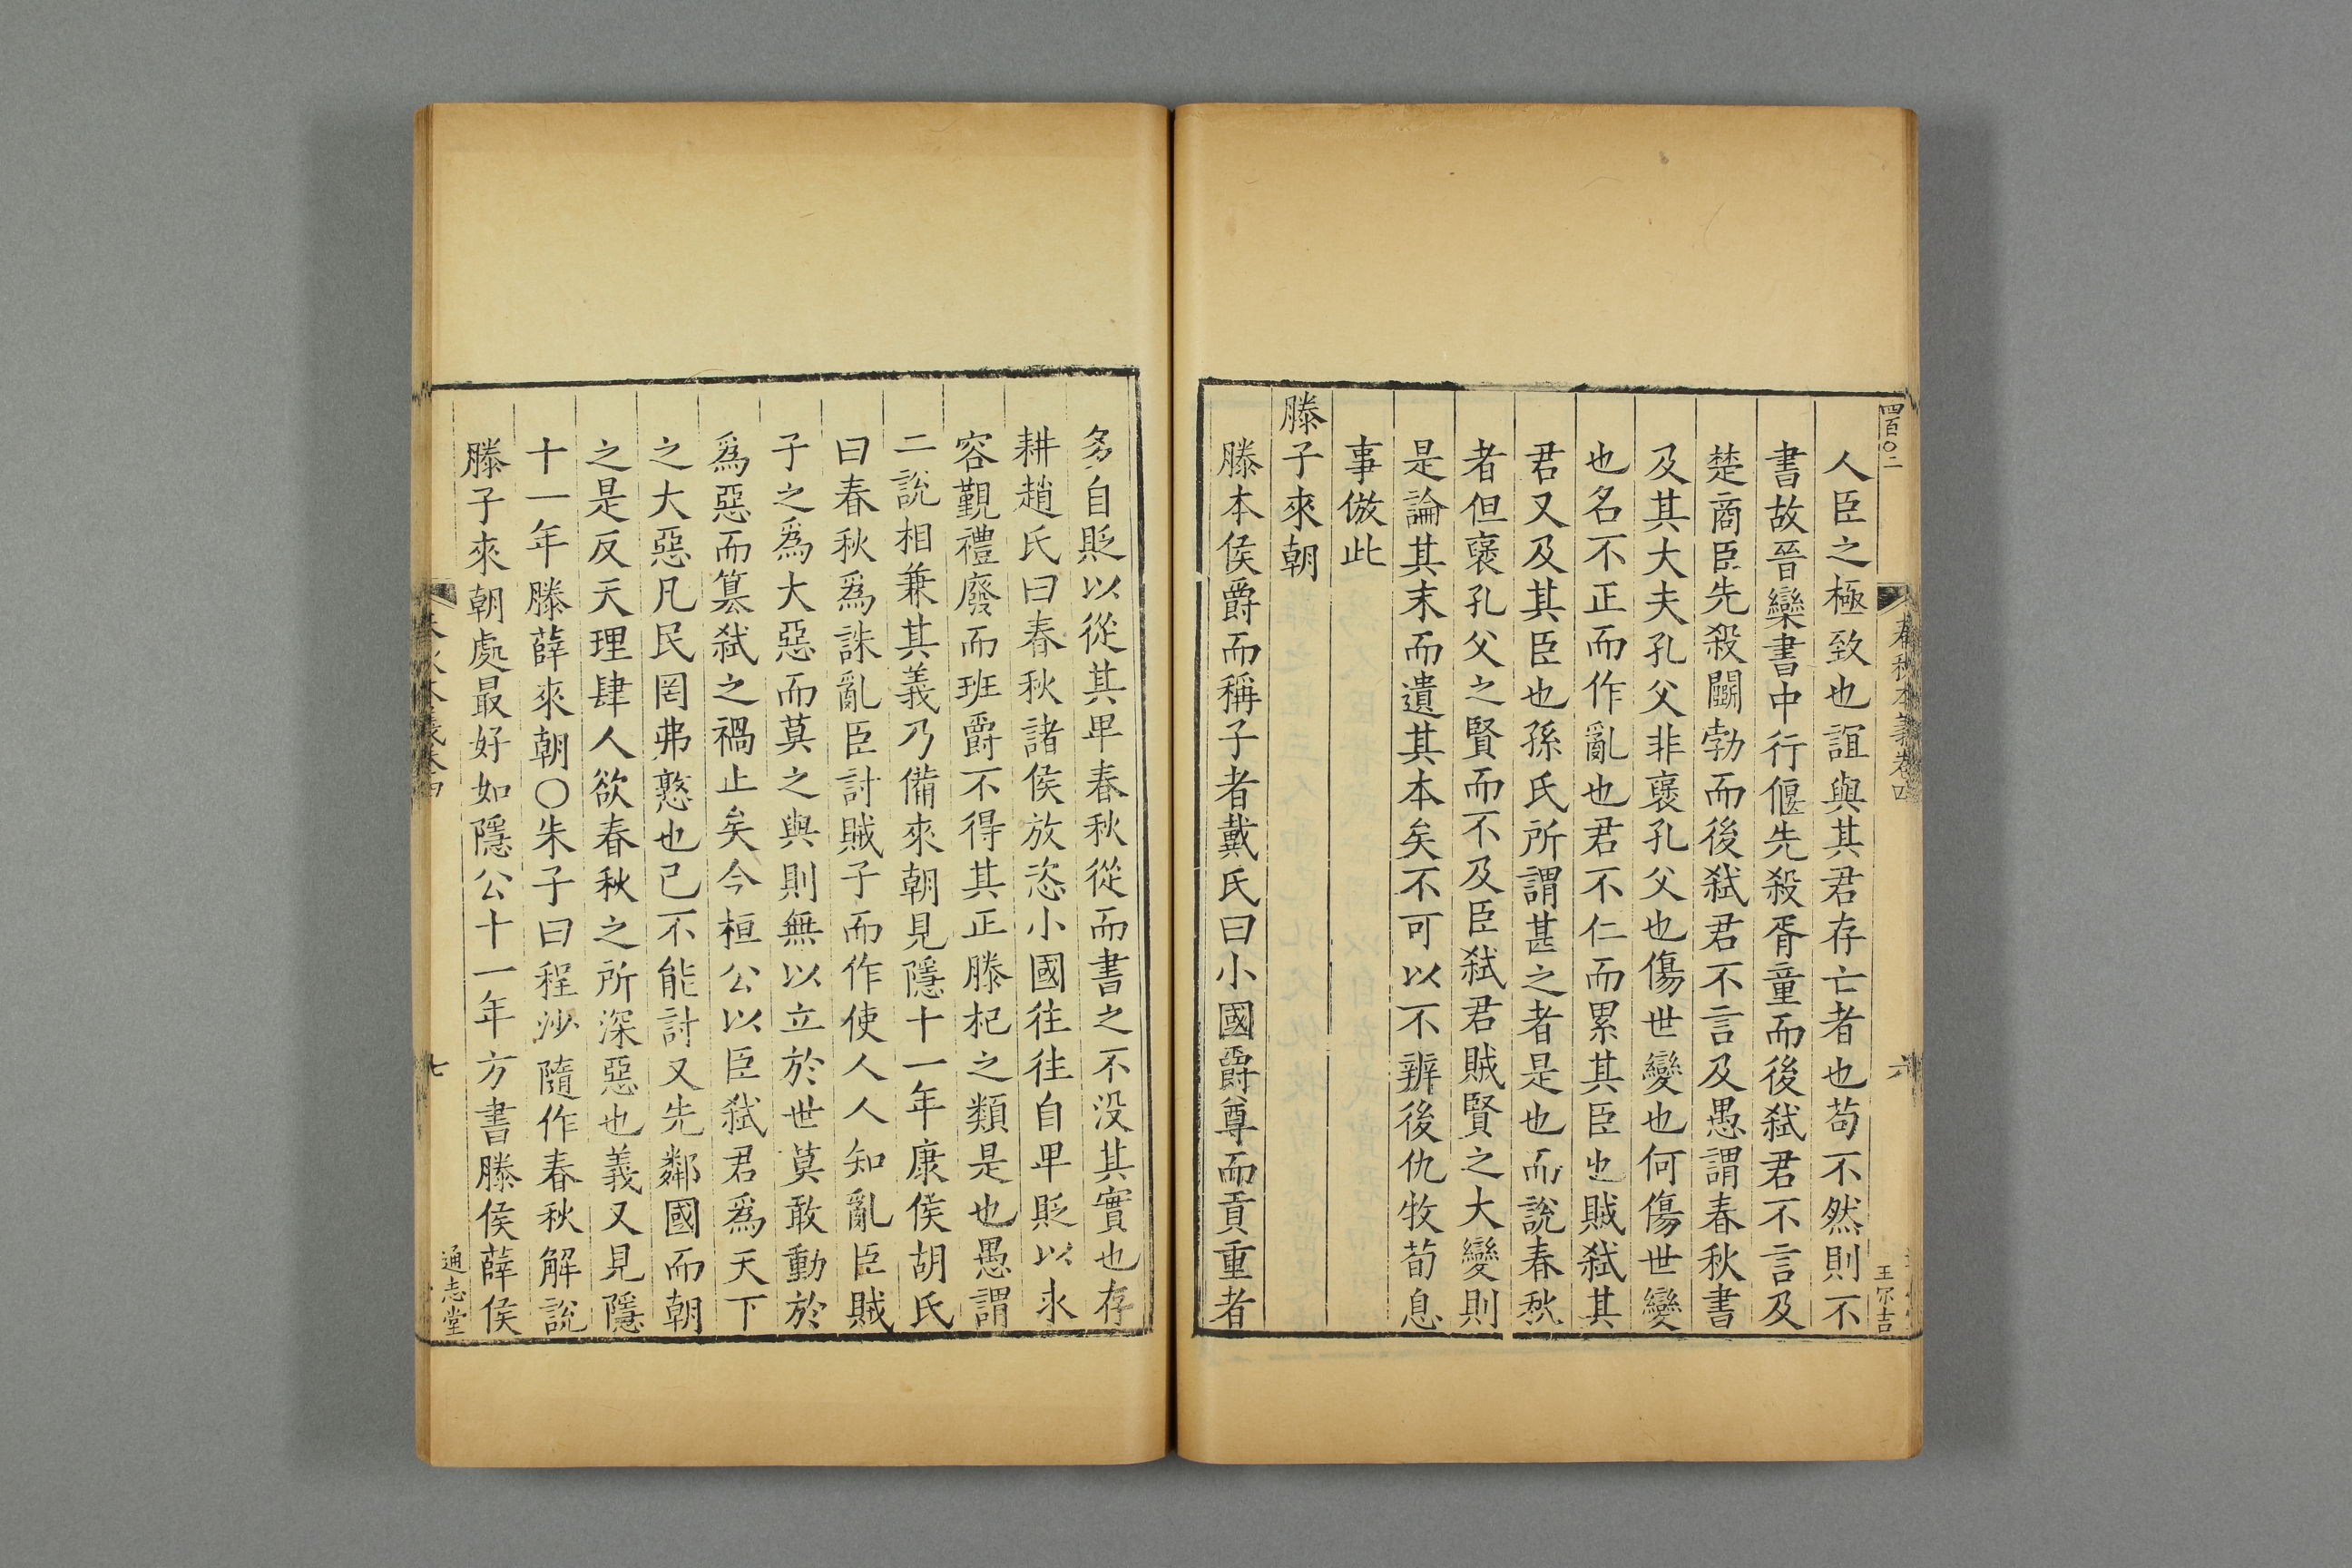 四百〇二
春秋本義卷四
六
王尔吉
人臣之極致也誼與其君存亡者也苟不然則不
書故晉欒書中行偃先殺胥童而後弑君不言及
楚商臣先殺鬭勃而後弑君不言及愚謂春秋書
及其大夫孔父非襃孔父也傷世變也何傷世變
也名不正而作亂也君不仁而累其臣也賊弑其
君又及其臣也孫氏所謂甚之者是也而說春秋
者但襃孔父之賢而不及臣弑君賊賢之大變則
是論其末而遺其本矣不可以不辨後仇牧荀息
事倣此
滕子來朝
滕本侯爵而稱子者戴氏曰小國爵尊而貢重者
多自貶以從其卑春秋從而書之不没其實也存
耕趙氏曰春秋諸侯放恣小國往往自卑貶以求
容覲禮廢而班爵不得其正滕杞之類是也愚謂
二說相兼其義乃備來朝見隱十一年康侯胡氏
曰春秋爲誅亂臣討賊子而作使人人知亂臣賊
子之爲大惡而莫之與則無以立於世莫敢動於
爲惡而篡弑之禍止矣今桓公以臣弑君爲天下
之大惡凡民罔弗憝也已不能討又先鄰國而朝
之是反天理肆人欲春秋之所深惡也義又見隱
十一年滕薛來朝○朱子曰程沙隨作春秋解說
滕子來朝處最好如隱公十一年方書滕侯薛侯
春秋本義卷四
七
通志堂